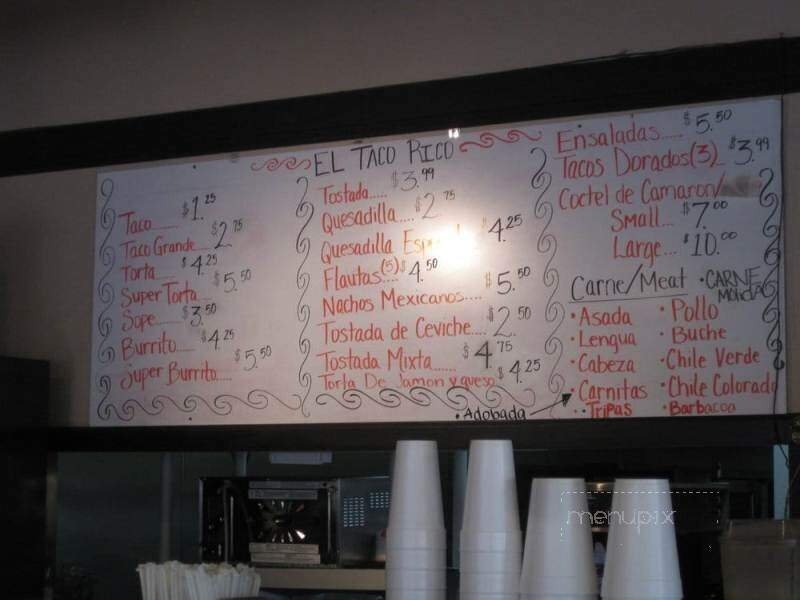 EL TACO RICO
Taco..... $1.25
Taco Grande.... $2.75
Torta.... $4.25
Super Torta... $5.50
Sope..... $3.50
Burrito..... $4.25
Super Burrito..... $5.50
Tostada..... $3.99
Quesadilla.... $2.75
Quesadilla $4.25
Flautas(5) $4.50
Nachos Mexicanos.... $5.50
Tostada de Ceviche.... $2.50
Tostada Mixta...... $4.75
Torta De Jamon y queso $4.25
Ensaladas..... $5.50
Tacos Dorados(3).. $3.99
Coctel de Camaron/
Small... $7.00
Large... $10.00
Carne/Meat
• CARNE MOLIDA
• Asada
• Lengua
• Cabeza
• Carnitas
• Tripas
• Adobada
• Pollo
• Buche
• Chile Verde
• Chile Colorado
• Barbacoa
menupix